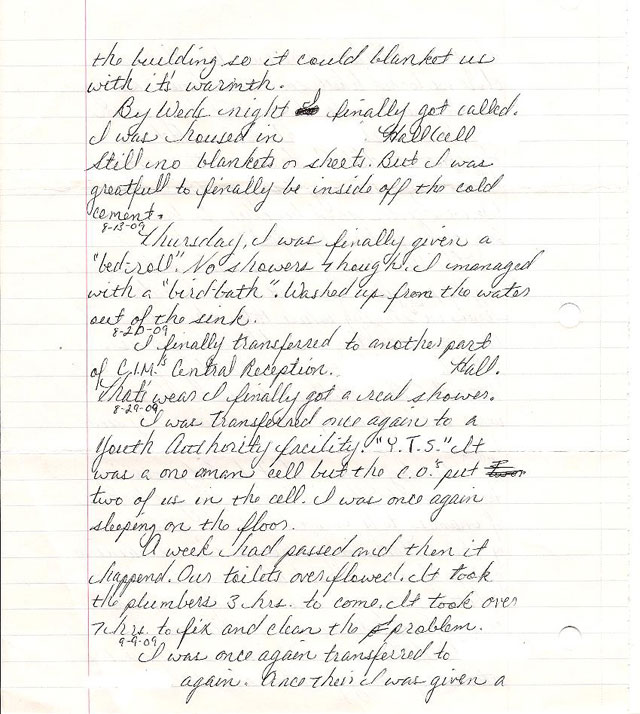 the building so it could blanket us
with it's warmth.
By Weds night I finally got called.
I was housed in Hall cell
Still no blankets or sheets. But I was
greatfull to finally be inside off the cold
cement.
8-13-09
Thursday, I was finally given a
"bed-roll". No showers though. I managed
with a "bird-bath". Washed up from the water
out of the sink.
8-20-09
I finally transferred to another part
of C.I.M.'s Central Reception. Hall.
That's wear I finally got a real shower.
8-29-09
I was transferred once again to a
Youth Authority facility. "Y.T.S." It
was a one man cell but the C.O.'s put
two of us in the cell. I was once again
sleeping on the floor.
A week had passed and then it
happend. Our toilets overflowed. It took
the plumbers 3 hrs. to come. It took over
7 hrs. to fix and clean the problem.
9-9-09
I was once again transferred to
again. Once their I was given a